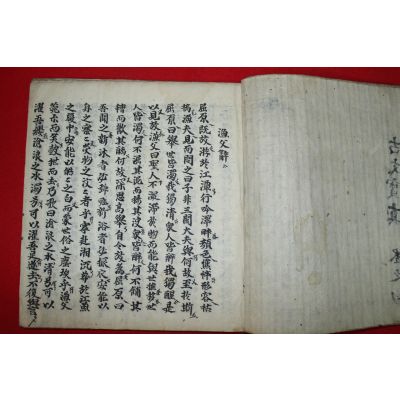 漁父辭
屈原既放游於江潭行吟澤畔顔色憔悴形容枯
槁漁父見而問之曰子非三閭大夫與何故至於斯
屈原曰擧世皆濁我獨清衆人皆醉我獨醒是
以見放漁父曰聖人不凝滯於物而能與世推移世
人皆濁何不淈其泥而揚其波衆人皆醉何不餔其
糟而歠其醨何故深思高擧自令放爲屈原曰
吾聞之新沐者必彈冠新浴者必振衣安能以
身之察察受物之汶汶者乎寧赴湘流葬於江魚
之腹中安能以皓皓之白而蒙世俗之塵埃乎漁父
莞爾而笑鼓枻而去乃歌曰滄浪之水清兮可以
濯吾纓滄浪之水濁兮可以濯吾足遂去不復與言